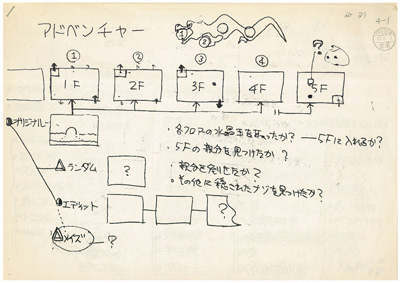 アドベンチャー
10 31
4-1
① ② ③ ④
① ②
1F 2F 3F 4F 5F
?
オリジナル
・各フロアの水晶玉を取ったか? — 5Fに入れるか?
・5Fの親分を見つけたか?
・親分を倒せたか?
・その他に穏されたナゾを見つけたか?
ランダム
?
エディット
?
メイズ ?